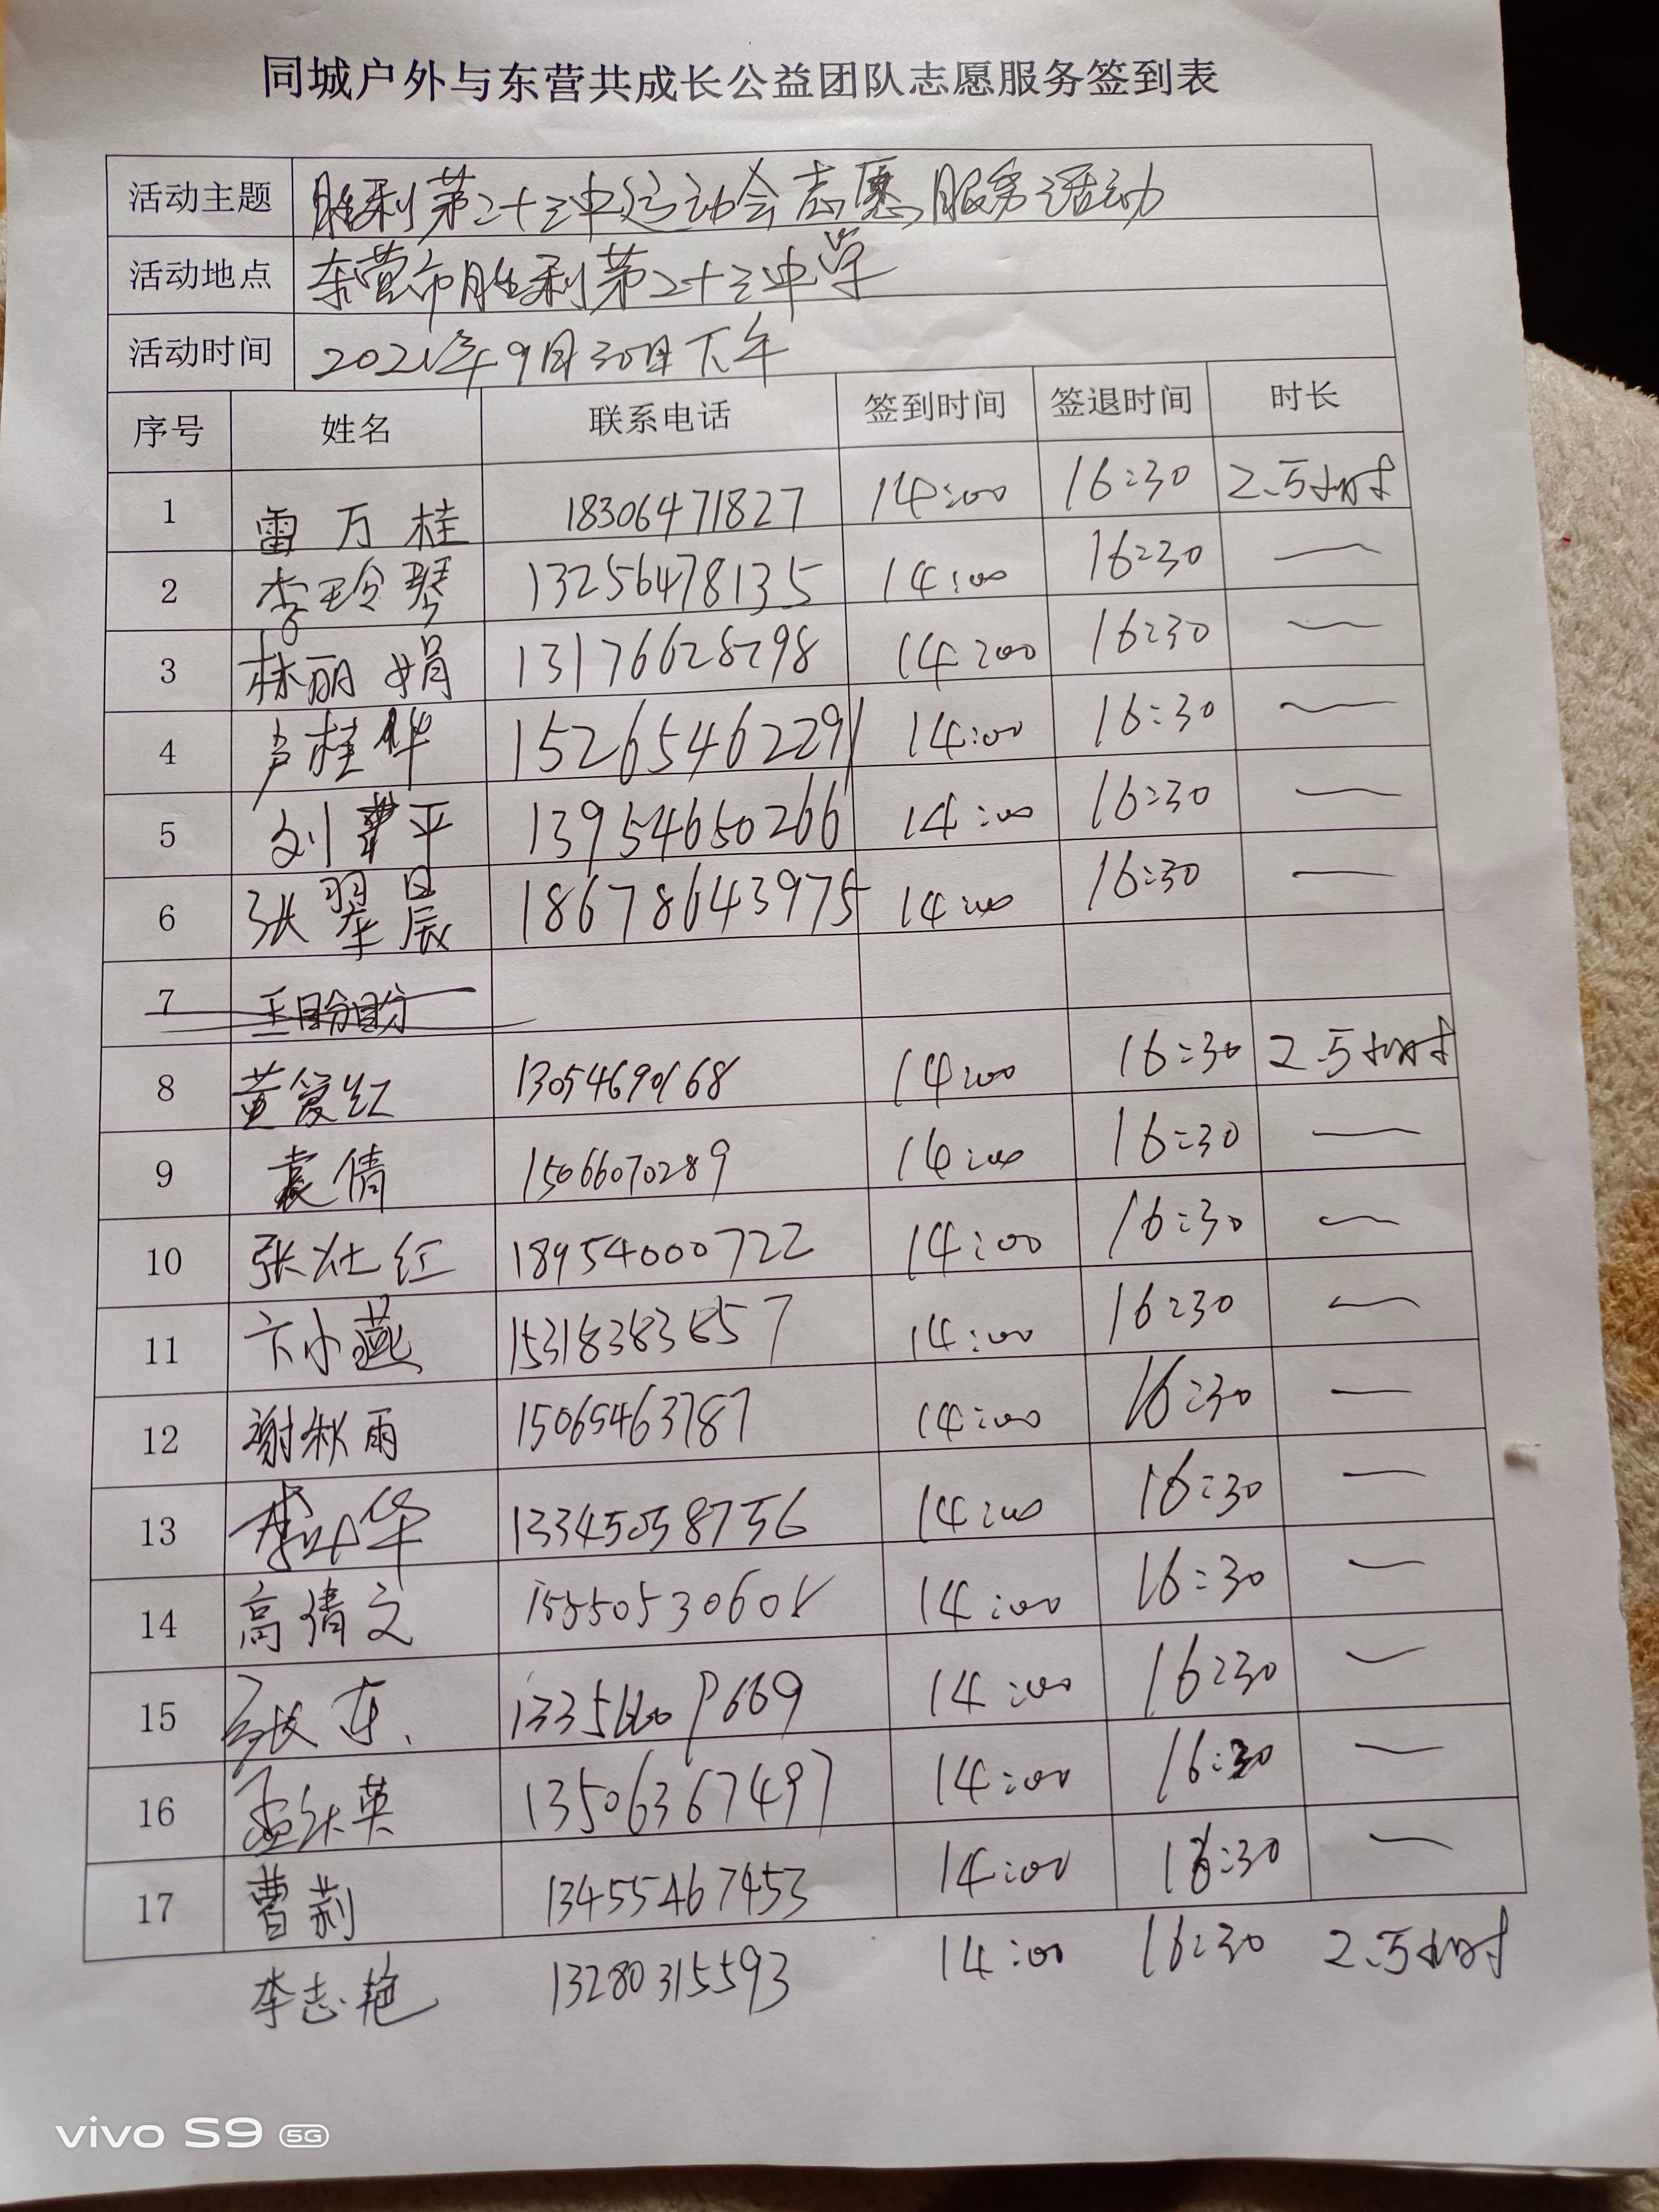 同城户外与东营共成长公益团队志愿服务签到表
活动主题 胜利第二十三中运动会志愿服务活动
活动地点 东营市胜利第二十三中学
活动时间 2021年9月30日下午
序号 姓名 联系电话 签到时间 签退时间 时长
1 雷万桂 18306471827 14:00 16:30 2.5小时
2 李玲琴 13256478135 14:00 16:30 —
3 林丽娟 13176628298 14:00 16:30 —
4 卢桂华 15265462291 14:00 16:30 —
5 刘平 13954650266 14:00 16:30 —
6 张翠晨 18678643975 14:00 16:30 —
7 王盼盼
8 黄爱红 13054690168 14:00 16:30 2.5小时
9 袁倩 15066070289 14:00 16:30 —
10 张灶红 18954000722 14:00 16:30 —
11 卞小燕 15318383857 14:00 16:30 —
12 谢秋雨 15065463787 14:00 16:30 —
13 华 13345058756 14:00 16:30 —
14 高倩文 15550530608 14:00 16:30 —
15 张东 14:00 16:30 —
16 孟英 13506367497 14:00 16:30 —
17 曹莉 13455467453 14:00 16:30 —
李志艳 13280315593 14:00 16:30 2.5小时
vivo S9 5G